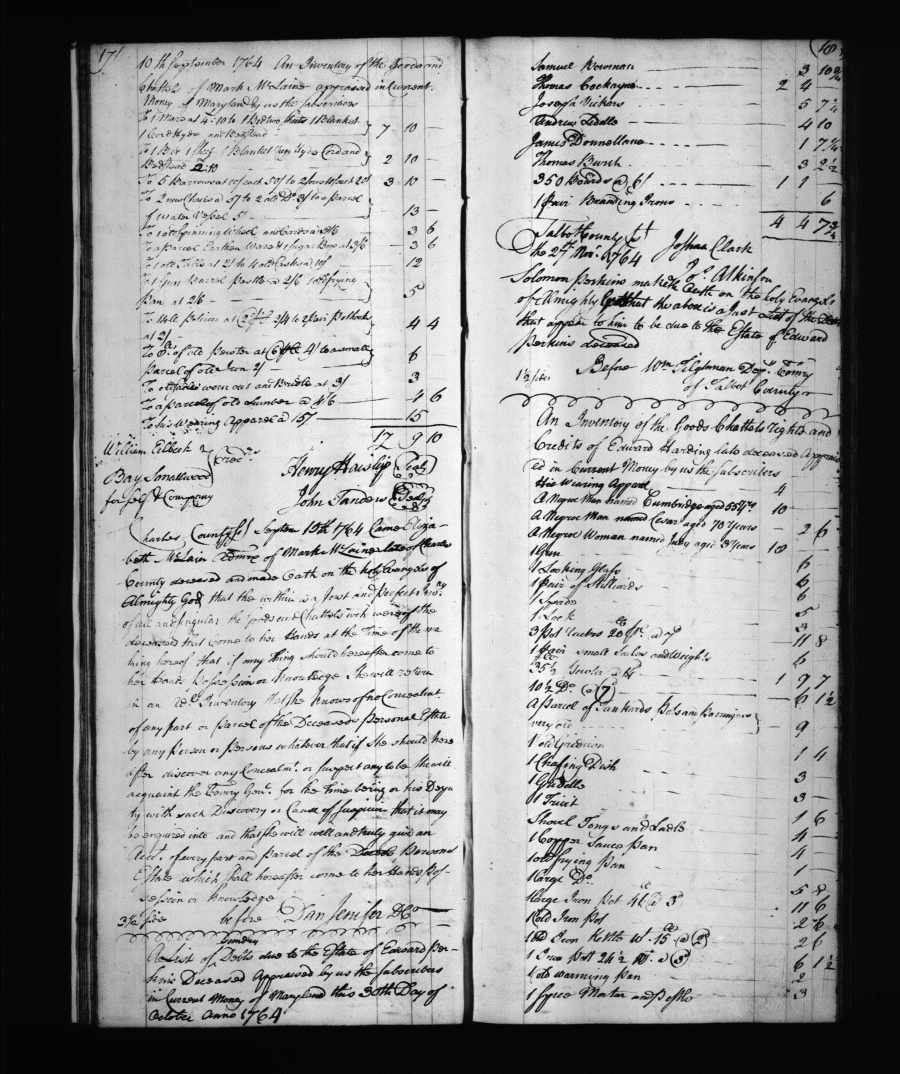 17
10th September 1764 An Inventory of the Goods and
Chattels of Mark McLaine appraised in Current
Money of Maryland by us the Subscribers
To 1 Mare at 4.10 to 1 Bed two Sheets 1 Blanket
1 Cord Hyde and Bedstead } 7 10 —
To 1 Bed 1 Sheet 1 Blanket Hyde Cord and
Bedstead 2:10 } 2 10 —
To 5 Barrows at 10/ each 50/ to 2 Sows to each 20/ 3 10 —
To 2 new Chairs a 5/ to 2 old Do 3/ to a parcel
of Water Vessel 5/ } 13 —
To 1 old Spinning Wheel and Cards a 3/6 3 6
To a parcel Earthen Ware & 1 Sugar Box at 3/6 3 6
To 1 old Table at 2/ to 4 old Casks a 10/ 12
To 1 Gun Barrel Pestle a 2/6 1 old frying
pan at 2/6 } 5
To 14 lb Potiron at 2/4 to 2 pair Pothooks
at 2/ } 4 4
To 8 lb of old Pewter at 4/ to a small
parcel of old Iron 2/ } 6
To old worn out and Bridle at 3/ 3
To a parcel of old Lumber a 4/6 4 6
To his Wearing Apparel a 15/ 15
17 9 10
William Eilbeck
Bay Smallwood
for Self & Company
} Credrs
Henry Hawslip (Seal)
John Sanders (Seal)
Charles County Sct Septem 15th 1764 Came Eliza-
beth McLain Admrx of Mark McLaine late of Charles
County deceased and made Oath on the holy Evangels of
Almighty God, that the within is a Just and perfect Inv.ry
of all and singular the Goods and Chattels wch were of the
deceased that come to her Hands at the Time of the ma
king hereof that if any thing should hereafter come to
her Hands Possession or Knowledge She will return
in an Addl Inventory that She knows of no Concealmt
of any part or Parcel of the Deceaseds Personal Estate
by any Person or Persons whatever that if She should here
after discover any Concealmt or suspect any to be she will
acquaint the Comry Genl for the Time being or his Depu
ty with such Discovery or Cause of Suspicion that it may
be enquired into and that She will well and truly give an
Acct of every part and Parcel of the Personal
Estate which shall hereafter come to her Hands Pos-
session or Knowledge
3 1/2 before Dan Jenifer DCo
Sundry
A List of Debts due to the Estate of Edward Per-
kins Deceased Appraised by us the Subscribers
in Current Money of Maryland this 30th Day of
October Anno 1764
18
Samuel Bowman 3 10
Thomas Cockayne 2 4 —
Joseph Vickars 5 7
Andrew Liddle 4 10
James Donnellane 1 7
Thomas Burch 3 2 1/2
350 Boards @ 6/ 1 1 —
1 pair Branding Irons 6
4 4 7
Talbot County Sct
the 27 Novr 1764
Joshua Clark
Jos. Atkinson
Solomon Perkins maketh Oath on the holy Evangels
of Almighty God that the above is a Just List of the
that appear to him to be due to the Estate of Edward
Perkins deceased
Before Wm Tilghman Depy Comry
of Talbot County
1 1/2 sides
An Inventory of the Goods Chattels rights and
Credits of Edward Harding late deceased Apprais
ed in Current Money by us the Subscribers
His Wearing Apparel 4
A Negroe Man named Cumbridge aged 55 yrs 10 —
A Negroe Man named Cesar aged 70 years — 2 6
A Negroe Woman named aged years 10 —
1 Gun
1 Looking Glass 6
1 pair of Stilliards 6
1 Spade 6
1 Lock 5
3 Pot racks 20 lb a 7 11 8
1 pair small Scales and Weights 6
35 1/2 Pewter a 1 9 7
10 1/2 Do @ 7 6 1 1/2
A Parcel of Tankards Pots and Porringers
very old } 9
1 old Gridiron 1 4
1 Chafing Dish 3
1 Griddle 3 —
1 Trivit 1 6
Shovel Tongs and Ladle 4 —
1 Copper Sauce pan 4 —
1 old frying pan 1
1 large Do 5 8
1 large Iron Pot 46 a 3 11 6
1 old Iron Pot 2 6
1 old Iron Kettle wt 15 @ 2 2 6
1 Iron Pott 24 1/2 lb a 3 6 1 1/2
1 old warming pan 2
1 Spice Mortar and Pestle 3